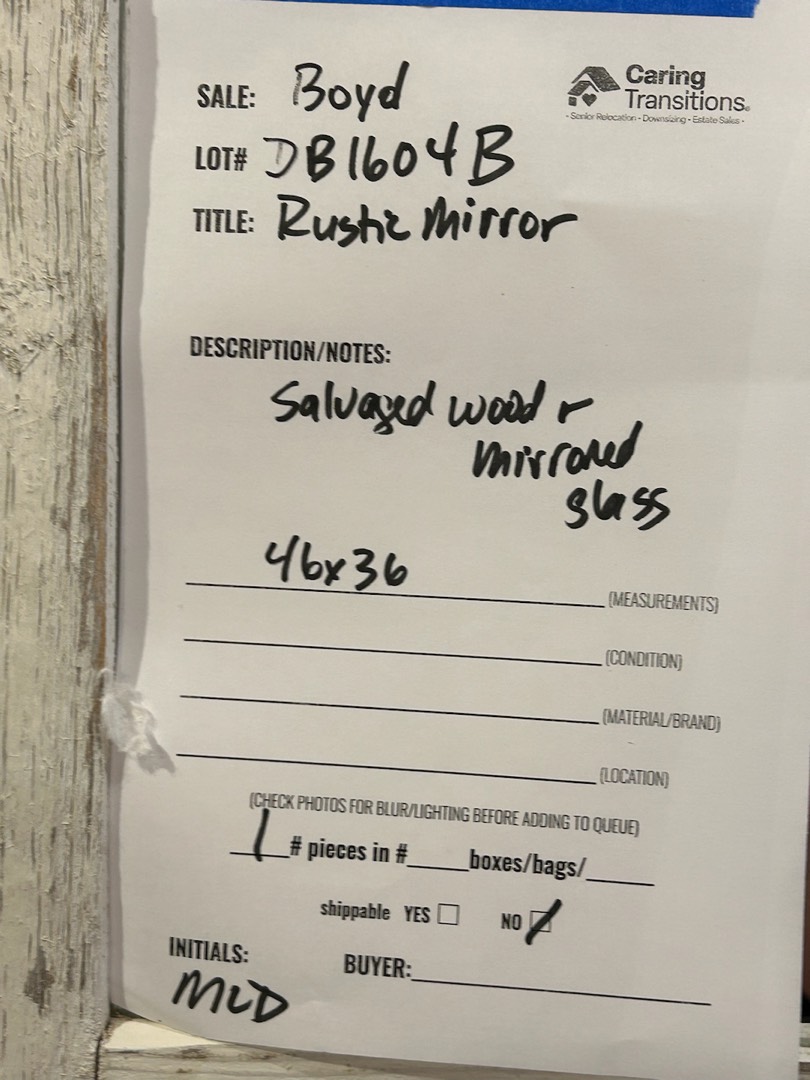 Caring
Transitions®
- Senior Relocation - Downsizing - Estate Sales -
SALE: Boyd
LOT# DB1604B
TITLE: Rustic Mirror
DESCRIPTION/NOTES:
Salvaged wood +
mirrored
glass
46x36 (MEASUREMENTS)
(CONDITION)
(MATERIAL/BRAND)
(LOCATION)
(CHECK PHOTOS FOR BLUR/LIGHTING BEFORE ADDING TO QUEUE)
1 # pieces in # boxes/bags/
shippable YES NO
INITIALS: BUYER:
MLD